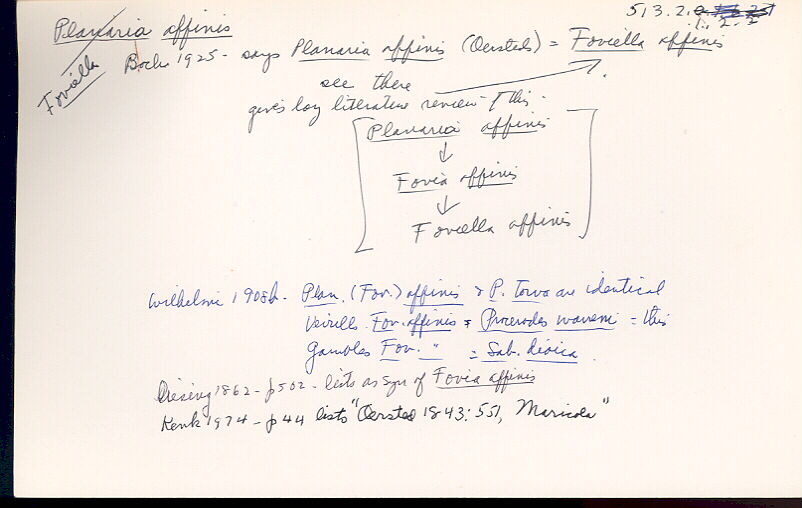 Planaria affinis
5/3.2.
1. 2. 2
Foviella
Bock 1925 - says Planaria affinis (Oersted) = Foviella affinis
see there
gives long literature review of this.
[Planaria affinis
↓
Fovia affinis
↓
Foviella affinis]
Wilhelmi 1908b - Plan. (Fov.) affinis & P. torva are identical
Verrills Fov. affinis = Procerodes waveni = this
Gambles Fov. " = Sab. dioica.
Diesing 1862 - p502 - lists as syn of Fovia affinis
Kenk 1974 - p 44 lists "Oersted 1843: 551, Maricola"